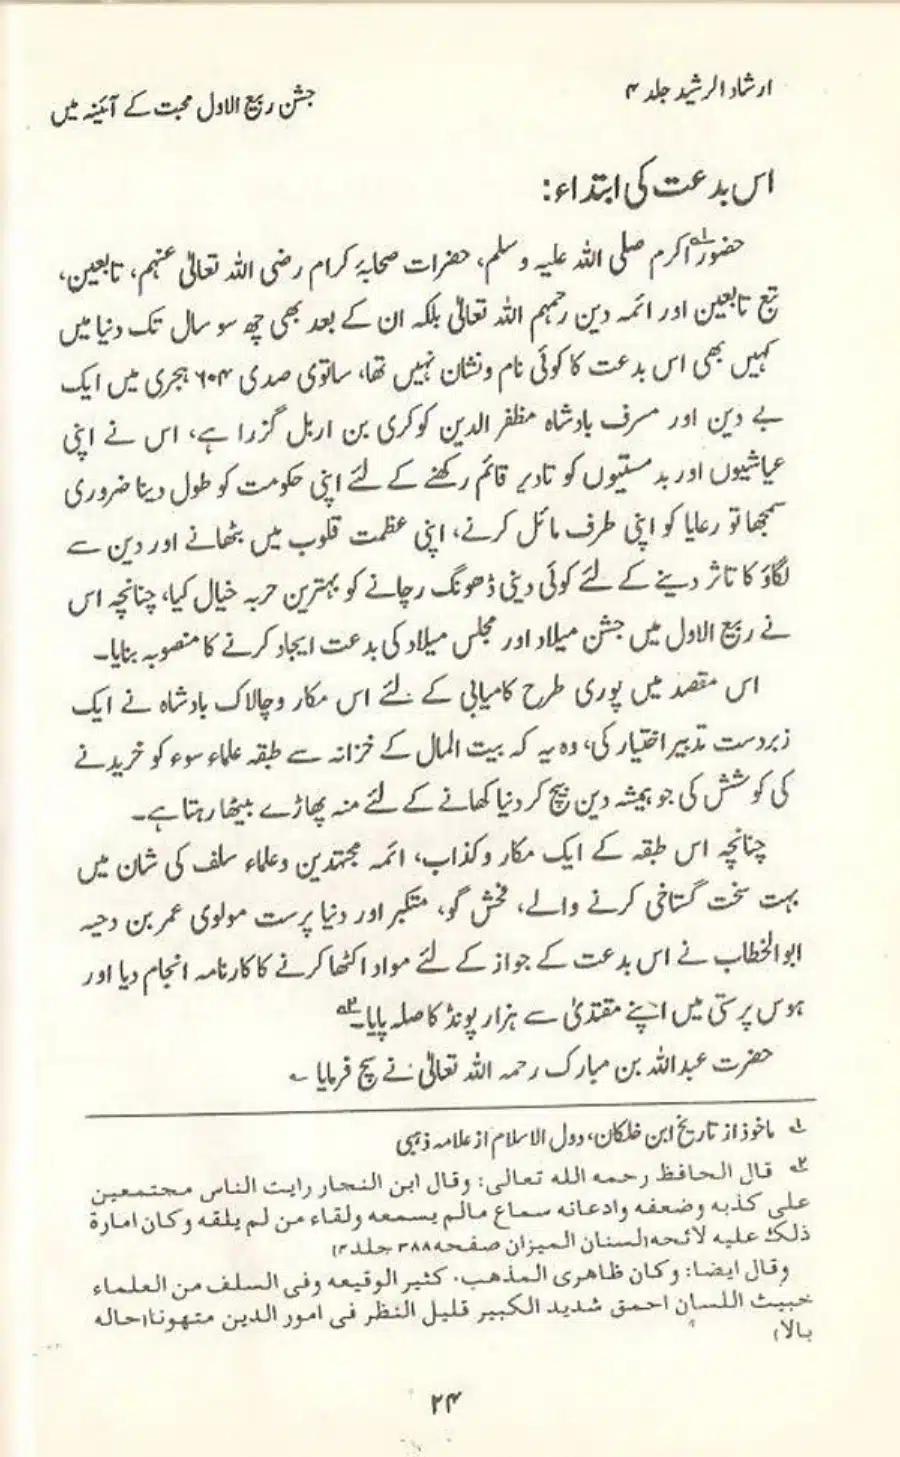 ارشاد الرشید جلد ۴
جشن ربیع الاول محبت کے آئینہ میں
اس بدعت کی ابتداء:
حضور۱؎ اکرم صلی اللہ علیہ وسلم، حضرات صحابۂ کرام رضی اللہ تعالیٰ عنہم، تابعین،
تبع تابعین اور ائمہ دین رحمہم اللہ تعالیٰ بلکہ ان کے بعد بھی چھ سو سال تک دنیا میں
کہیں بھی اس بدعت کا کوئی نام ونشان نہیں تھا، ساتوی صدی ۶۰۴ ہجری میں ایک
بے دین اور مسرف بادشاہ مظفر الدین کوکری بن اربل گزرا ہے، اس نے اپنی
عیاشیوں اور بدمستیوں کو تادیر قائم رکھنے کے لئے اپنی حکومت کو طول دینا ضروری
سمجھا تو رعایا کو اپنی طرف مائل کرنے، اپنی عظمت قلوب میں بٹھانے اور دین سے
لگاؤ کا تاثر دینے کے لئے کوئی دینی ڈھونگ رچانے کو بہترین حربہ خیال کیا، چنانچہ اس
نے ربیع الاول میں جشن میلاد اور مجلس میلاد کی بدعت ایجاد کرنے کا منصوبہ بنایا۔
اس مقصد میں پوری طرح کامیابی کے لئے اس مکار وچالاک بادشاہ نے ایک
زبردست تدبیر اختیار کی، وہ یہ کہ بیت المال کے خزانہ سے طبقہ علماء سوء کو خریدنے
کی کوشش کی جو ہمیشہ دین بیچ کر دنیا کھانے کے لئے منہ پھاڑے بیٹھا رہتا ہے۔
چنانچہ اس طبقہ کے ایک مکار وکذاب، ائمہ مجتہدین وعلماء سلف کی شان میں
بہت سخت گستاخی کرنے والے، فحش گو، متکبر اور دنیا پرست مولوی عمر بن دحیہ
ابو الخطاب نے اس بدعت کے جواز کے لئے مواد اکٹھا کرنے کا کارنامہ انجام دیا اور
ہوس پرستی میں اپنے مقتدیٰ سے ہزار پونڈ کا صلہ پایا۔۲؎
حضرت عبداللہ بن مبارک رحمہ اللہ تعالیٰ نے سچ فرمایا ؎
۱؎ ماخوذ از تاریخ ابن خلکان، دول الاسلام از علامہ ذہبی
۲؎ قال الحافظ رحمه الله تعالى: وقال ابن النجار رايت الناس مجتمعين
على كذبه وضعفه وادعائه سماع مالم يسمعه ولقاء من لم يلقه وكان امارة
ذلك عليه لائحه (لسنان الميزان صفحه ۳۸۸ جلد ۴)
وقال ايضا: وكان ظاهرى المذهب، كثير الوقيعه وفى السلف من العلماء
خبيث اللسان احمق شديد الكبير قليل النظر فى امور الدين متهونا (حاله
بالا)
۲۴